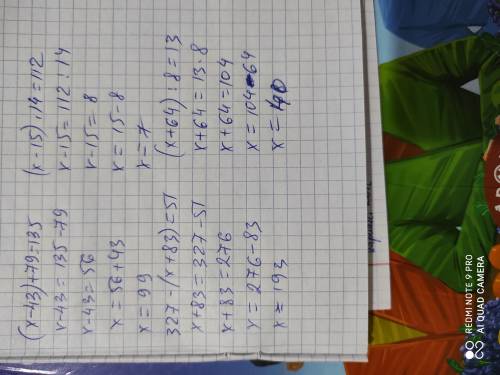 (x-43)+79=135
x-43=135-79
x-43=56
x=56+43
x=99
327-(x+83)=51
x+83=327-51
x+83=276
x=276-83
x=193
(x-15)·14=112
x-15=112:14
x-15=8
x=15-8
x=7
(x+64):8=13
x+64=13·8
x+64=104
x=104-64
x=40
REDMI NOTE 9 PRO
AI QUAD CAMERA